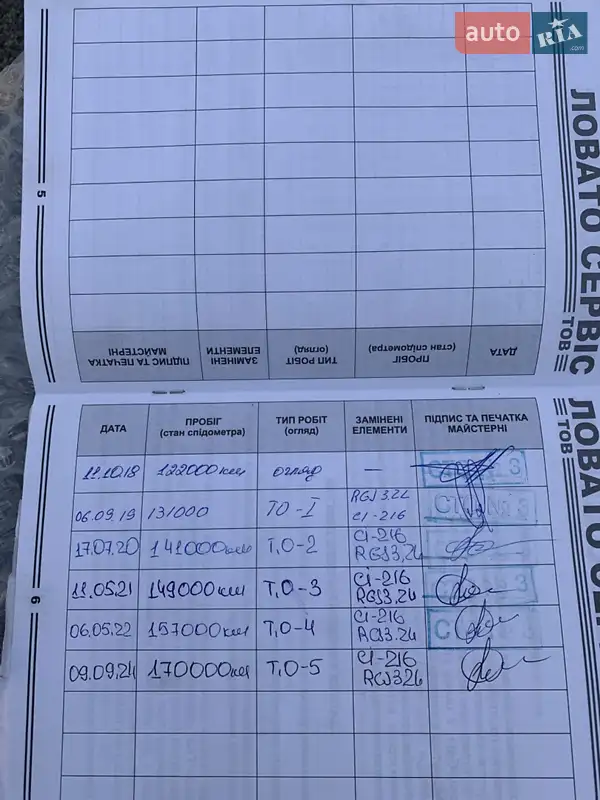 auto RIA .com
ТОВ ЛОВАТО СЕРВІС
5
ДАТА
ПРОБІГ (стан спідометра)
ТИП РОБІТ (огляд)
ЗАМІНЕНІ ЕЛЕМЕНТИ
ПІДПИС ТА ПЕЧАТКА МАЙСТЕРНІ
ТОВ ЛОВАТО
6
ДАТА
ПРОБІГ (стан спідометра)
ТИП РОБІТ (огляд)
ЗАМІНЕНІ ЕЛЕМЕНТИ
ПІДПИС ТА ПЕЧАТКА МАЙСТЕРНІ
11.10.18 122000км огляд —
06.09.19 131000 ТО-I
CI-216
17.07.20 141000км Т,О-2 CI-216
11.05.21 149000км Т,О-3 CI-216
06.05.22 157000км Т,О-4 CI-216
09.09.24 170000км Т,О-5 CI-216